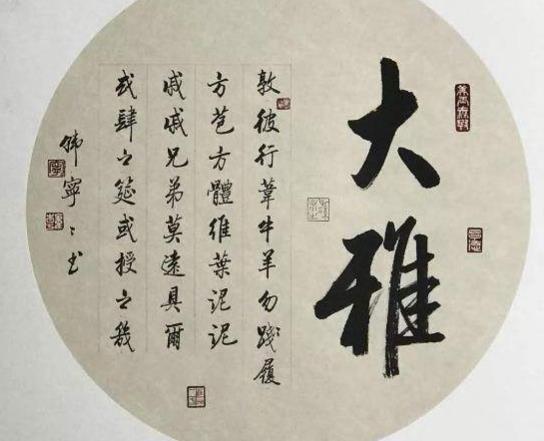 大雅
敦彼行葦牛羊勿踐履
方苞方體維葉泥泥
戚戚兄弟莫遠具爾
或肆之筵或授之幾
韩寧〻书